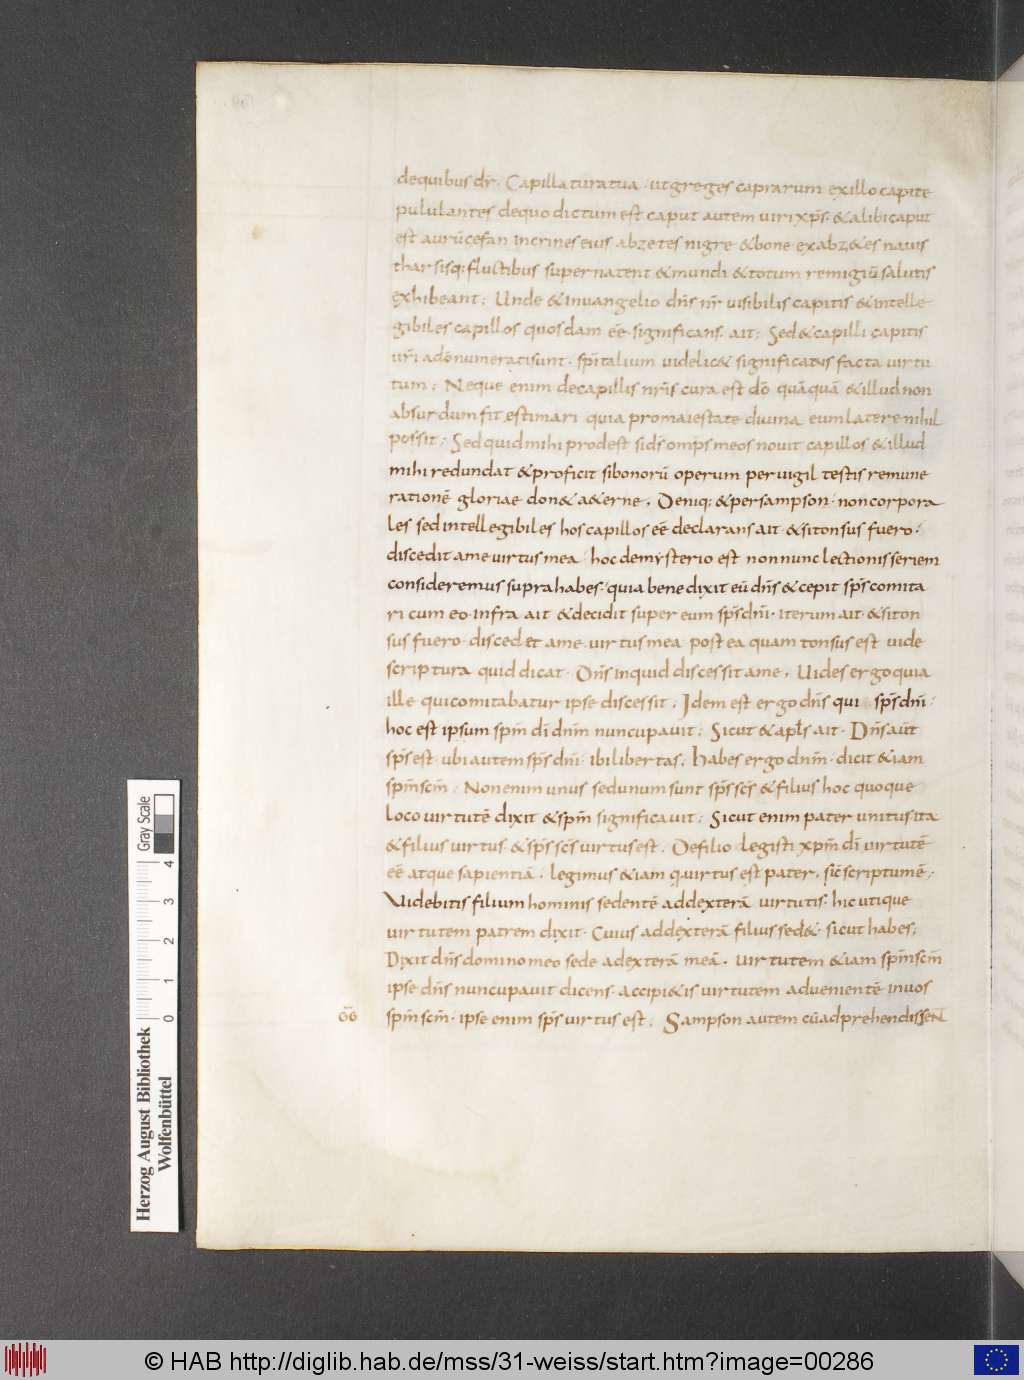 de quibus dr̄. Capillatura tua. ut greges caprarum ex illo capite
pululantes de quo dictum est caput autem uiri xp̄s. & alibi caput
est aurū cefan in crines eius abzetes nigre & bone exabz&es nauis
tharsis q: fluctibus supernatent & mundi & totum remigiū salutis
exhibeant; Unde & in uangelio dn̄s nr̄ uisibilis capitis & intelle
gibiles capillos quosdam eē significans. ait; Sed & capilli capitis
ur̄i a dō numerati sunt. spīitalium uidelic& significat us facta uirtu
tum; Neque enim de capillis nr̄is cura est dō quāquā & illud non
absurdum fit estimari quia pro maiestate diuina eum latere nihil
possit; Sed quid mihi prodest si ds̄ omp̄s meos nouit capillos & illud
mihi redundat & proficit si bonorū operum peruigil testis remune
rationē gloriae don& a&erne. Deniq; & per sampson. non corpora
les sed intellegibiles hos capillos eē declarans ait & si tonsus fuero:
discedit a me uirtus mea. hoc de mysterio est non nunc lectionis seriem
consideremus supra habes. quia benedixit eū dn̄s & cepit sp̄s comita
ri cum eo. infra ait & decidit super eum sp̄s dn̄i. iterum ait. & si ton
sus fuero. disced et a me uirtus mea postea quam tonsus est uide
scriptura quid dicat. Dn̄s inquid discessit a me. Uides ergo quia
ille qui comitabatur ipse discessit; Idem est ergo dn̄s qui sp̄s dn̄i:
hoc est ipsum spm̄ dī dnm̄ nuncupauit; Sicut & apl̄s ait. Dn̄s aūt
sp̄s est. ubi autem sp̄s dn̄i. ibi libertas. habes ergo dnm̄. dicit &iam
spm̄ scm̄; Non enim unus sed unum sunt sp̄s sc̄s & filius hoc quoque
loco uirtutē dixit & spm̄ significauit; Sicut enim pater unitus ita
& filius uirtus & sp̄s sc̄s uirtus est. De filio legisti xpm̄ dī uirtutē
eē atque sapientiā. legimus &iam q uirtus est pater. sic̄ scriptum ē;
Uidebitis filium hominis sedentē ad dexterā uirtutis: hic utique
uirtutem patrem dixit. Cuius ad dexterā filius sed&. sicut habes;
Dixit dn̄s domino meo sede a dexterā meā. uirtutem &iam spm̄ scm̄
ipse dn̄s nuncupauit dicens. accipi&is uirtutem aduenientē in uos
spm̄ scm̄. ipse enim sp̄s uirtus est; Sampson autem cū adprehendissen
Herzog August Bibliothek
Wolfenbüttel
0 1 2 3 4
Gray Scale
© HAB http://diglib.hab.de/mss/31-weiss/start.htm?image=00286